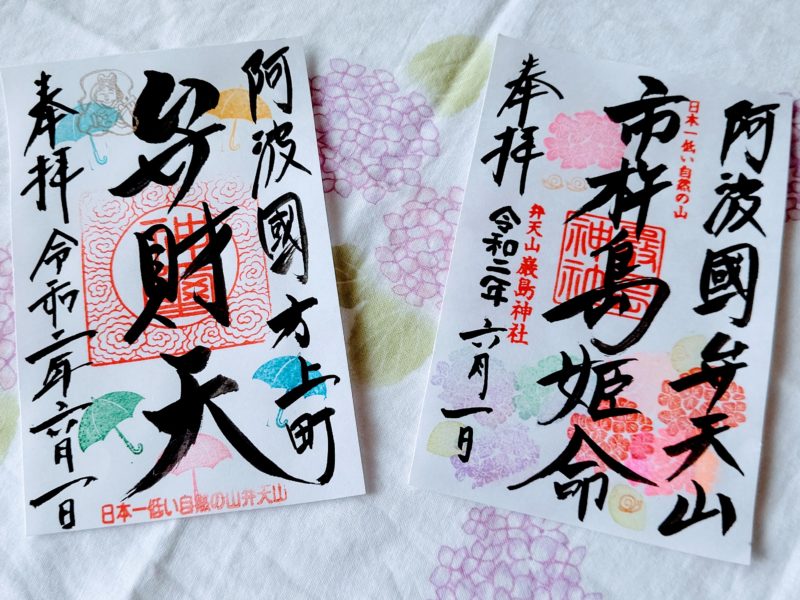 阿波國方上町
弁財天
奉拝
令和二年六月一日
日本一低い自然の山弁天山
阿波國弁天山
日本一低い自然の山
市杵島姫命
嚴島神社
弁天山 厳島神社
奉拝
令和二年 六月一日